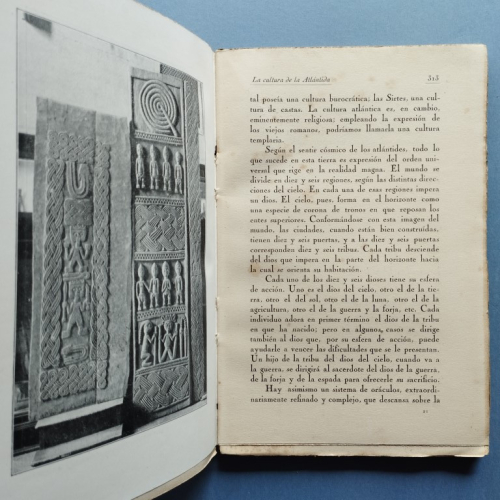 La cultura de la Atlántida 323
tal poseía una cultura burocrática; las Sirtes, una cul-
tura de castas. La cultura atlántica es, en cambio,
eminentemente religiosa; empleando la expresión de
los viejos romanos, podríamos llamarla una cultura
templaria.
Según el sentir cósmico de los atlántidos, todo lo
que sucede en esta tierra es expresión del orden univer-
sal que rige en la realidad magna. El mundo se
divide en diez y seis regiones, según las distintas direc-
ciones del cielo. En cada una de esas regiones impera
un dios. El cielo, pues, forma en el horizonte como
una especie de corona de tronos en que reposan los
entes superiores. Conformándose con esta imagen del
mundo, las ciudades, cuando están bien construídas,
tienen diez y seis puertas, y a las diez y seis puertas
corresponden diez y seis tribus. Cada tribu desciende
del dios que impera en la parte del horizonte hacia
la cual se orienta su habitación.
Cada uno de los diez y seis dioses tiene su esfera
de acción. Uno es el dios del cielo, otro el de la tie-
rra, otro el del sol, otro el de la luna, otro el de la
agricultura, otro el de la guerra y la forja, etc. Cada
individuo adora en primer término el dios de la tribu
en que ha nacido; pero en algunos casos se dirige
también al dios que, por su esfera de acción, puede
ayudarle a vencer las dificultades que se le presentan.
Un hijo de la tribu del dios del cielo, cuando va a
la guerra, se dirigirá al sacerdote del dios de la guerra,
de la forja y de la espada para ofrecerle su sacrificio.
Hay asimismo un sistema de oráculos, extraordi-
nariamente refinado y complejo, que descansa sobre la